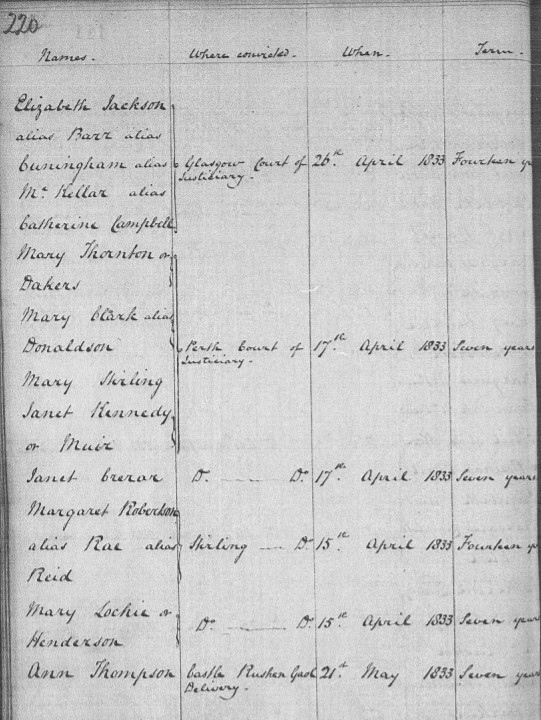 220
Names. Where convicted. When. Term.
Elizabeth Jackson
alias Barr alias
Cuningham alias Glasgow Court of 26th. April 1833 Fourteen ye
Mc. Kellar alias Justiciary.
Catherine Campbell
Mary Thornton or
Dakers
Mary Clark alias
Donaldson Perth Court of 17th. April 1833 Seven years
Justiciary.
Mary Stirling
Janet Kennedy
or Muir
Janet Crerar Do. Do. 17th. April 1833 Seven years
Margaret Robertson
alias Rae alias Stirling Do. 15th. April 1833 Fourteen ye
Reid
Mary Lockie or
Do. Do. 15th. April 1833 Seven years
Henderson
Ann Thompson Castle Rushen Gaol 21st. May 1833 Seven year
Delivery.